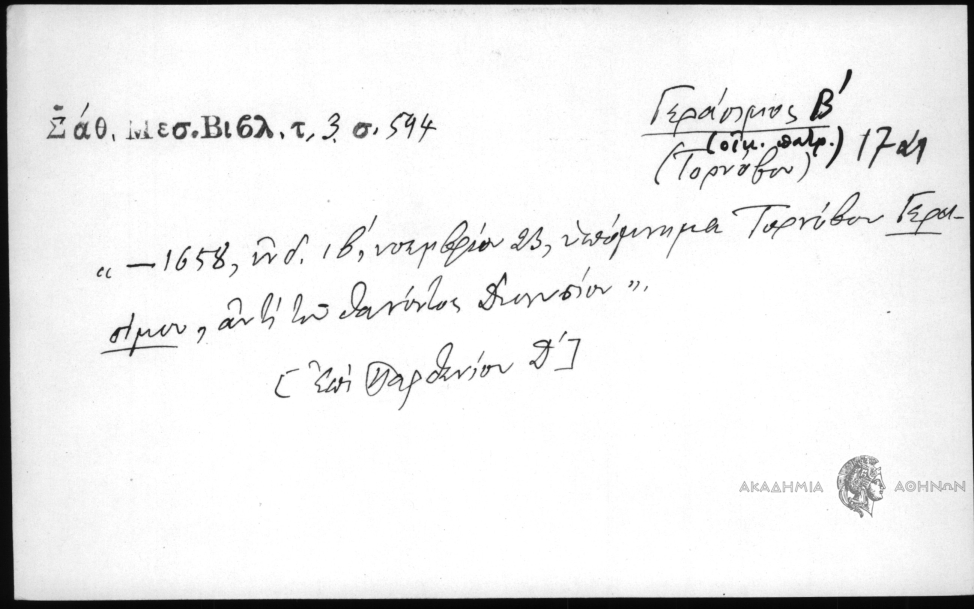 Σάθ. Μεσ. Βιβλ. τ. 3 σ. 594
Γεράσιμος Β΄
(οἰκ. πατρ.)
(Τορνόβου) 17 α1
"—1658, ἰνδ. ιβ΄, νοεμβρίου 23, ὑπόμνημα Τορνόβου Γερα-
σίμου, ἀντὶ τοῦ θανόντος Διονυσίου".
[Ἐπὶ Παρθενίου Δ΄]
ΑΚΑΔΗΜΙΑ ΑΘΗΝΩΝ